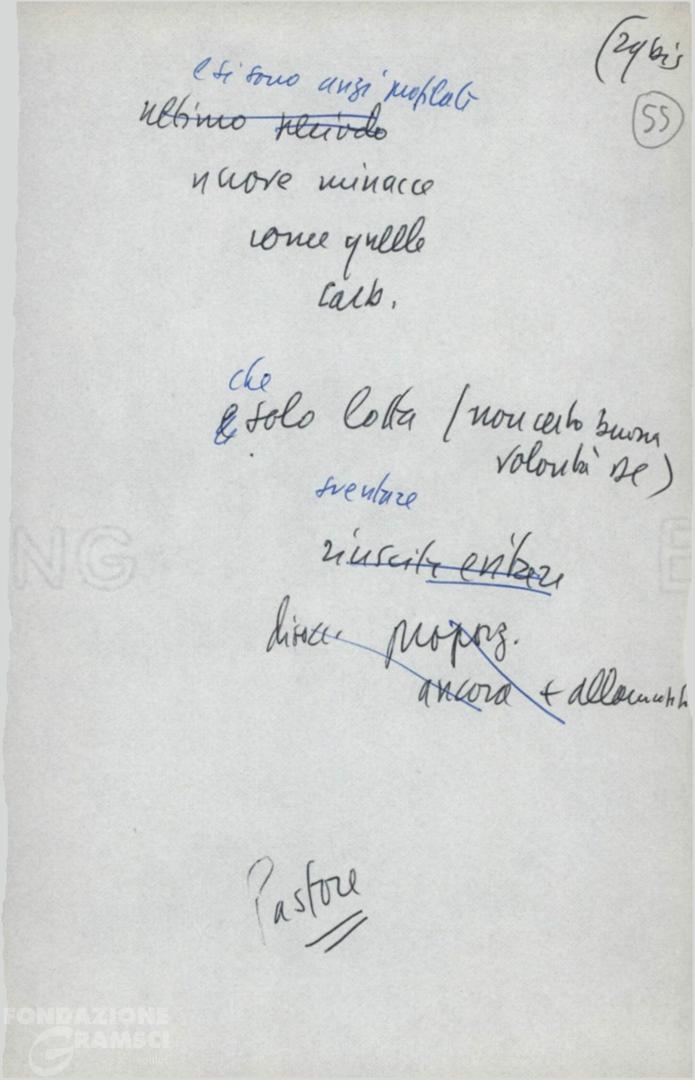 (29 bis
55
e si sono anzi profilati
ultimo periodo
nuove minacce
come quelle
Carb.
che
e solo lotta (non certo buona
volontà DC)
sventare
riuscita evitare
disocc. proporz.
ancora + allarmanti
Pastore
NG
E
FONDAZIONE
GRAMSCI